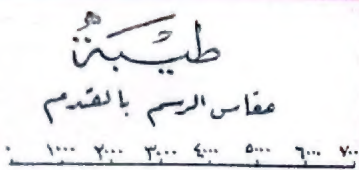 طَيْبَةٌ
مقاس الرسم بالقدم
٠ ١٠٠٠ ٢٠٠٠ ٣٠٠٠ ٤٠٠٠ ٥٠٠٠ ٦٠٠٠ ٧٠٠٠